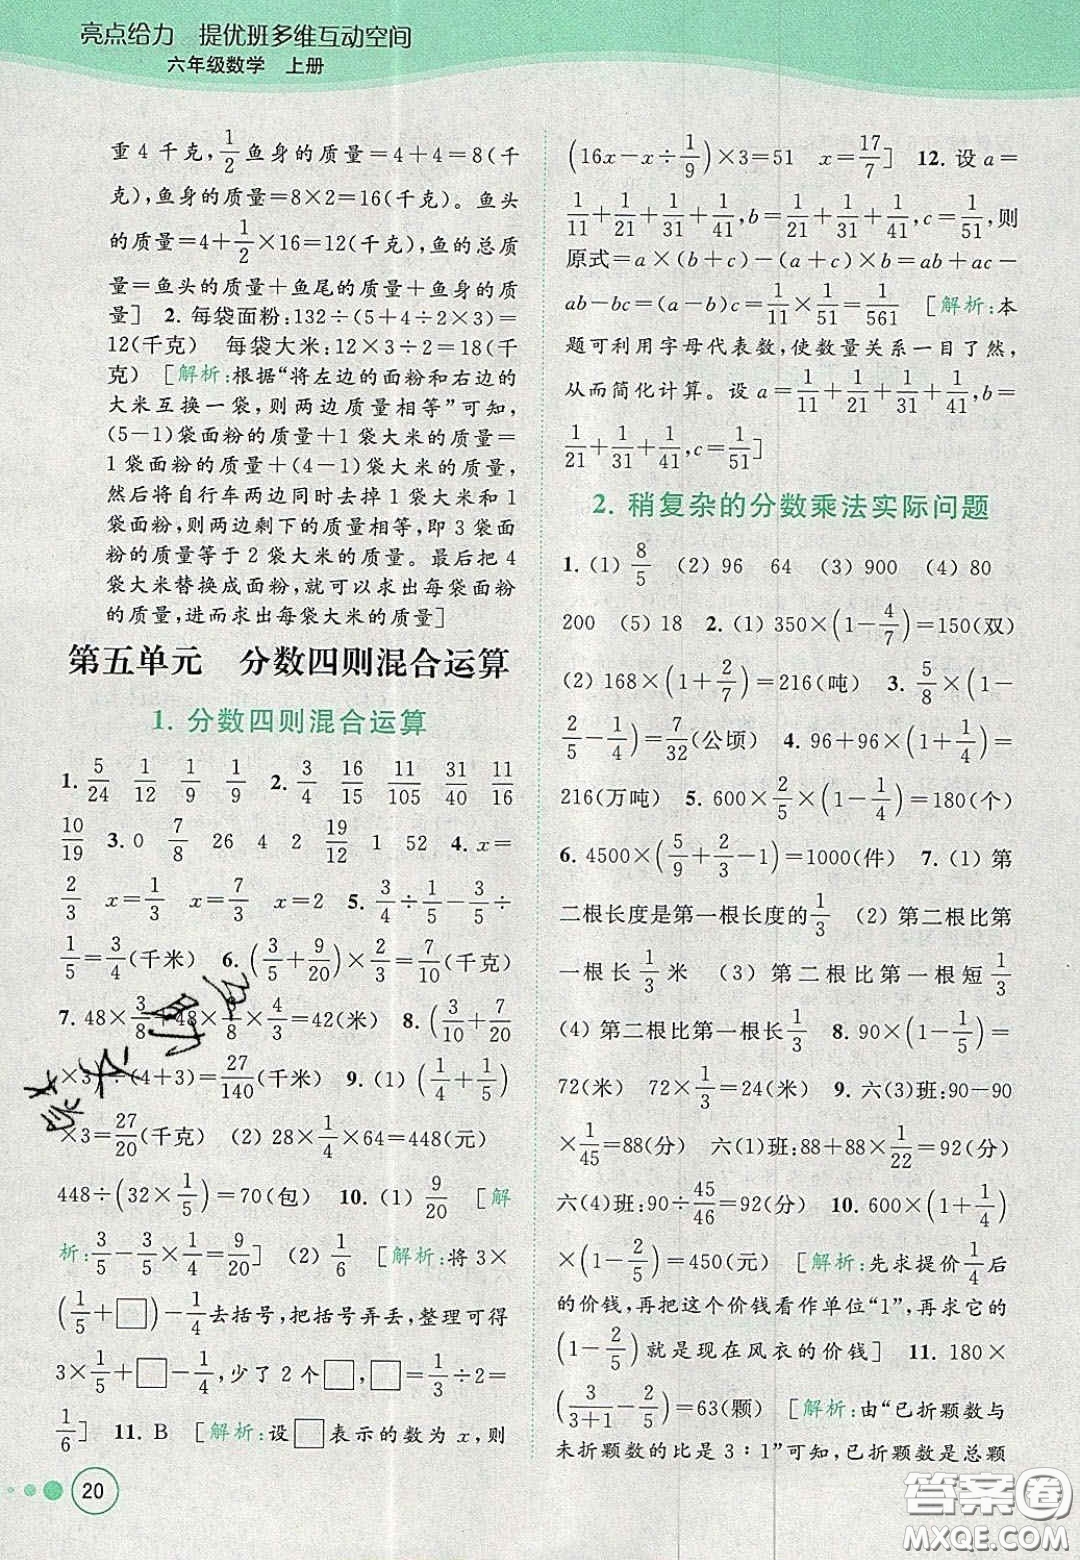 亮点给力 提优班多维互动空间
六年级数学 上册
重4千克,1/2鱼身的质量=4+4=8(千
克),鱼身的质量=8×2=16(千克)。鱼头
的质量=4+1/2×16=12(千克),鱼的总质
量=鱼头的质量+鱼尾的质量+鱼身的
质量] 2. 每袋面粉:132÷(5+4÷2×3)=
12(千克) 每袋大米:12×3÷2=18(千
克) [解析:根据“将左边的面粉和右边的
大米互换一袋,则两边质量相等”可知,
(5-1)袋面粉的质量+1袋大米的质量=
1袋面粉的质量+(4-1)袋大米的质量,
然后将自行车两边同时去掉1袋大米和1
袋面粉,两边剩下的质量相等,即3袋面
粉的质量等于2袋大米的质量。最后把4
袋大米替换成面粉,就可以求出每袋面粉
的质量,进而求出每袋大米的质量]
第五单元 分数四则混合运算
1. 分数四则混合运算
1. 5/24 1/12 1/9 1/9 2. 3/4 16/15 11/105 31/40 11/16
10/19 3. 0 7/8 26 4 2 19/12 1 52 4. x=
2/3 x=1/3 x=7/3 x=2 5. 3/4÷1/5-3/5÷
1/5=3/4(千米) 6. (3/5+9/20)×2/3=7/10(千克)
7. 48×3/8+48×3/8×4/3=42(米) 8. (3/10+7/20
×3)÷(4+3)=27/140(千米) 9. (1) (1/4+1/5)
×3=27/20(千克) (2) 28×1/4×64=448(元)
448÷(32×1/5)=70(包) 10. (1) 9/20 [解
析:3/5-3/5×1/4=9/20] (2) 1/6 [解析:将3×
(1/5+□)-1/4去括号,把括号弄丢,整理可得
3×1/5+□-1/4,少了2个□,□=1/3÷2=
1/6] 11. B [解析:设□表示的数为x,则
20
(16x-x÷1/9)×3=51 x=17/7] 12. 设a=
1/11+1/21+1/31+1/41,b=1/21+1/31+1/41,c=1/51,则
原式=a×(b+c)-(a+c)×b=ab+ac-
ab-bc=(a-b)c=1/11×1/51=1/561 [解析:本
题可利用字母代表数,使数量关系一目了然,
从而简化计算。设a=1/11+1/21+1/31+1/41,b=
1/21+1/31+1/41,c=1/51]
2. 稍复杂的分数乘法实际问题
1. (1) 8/5 (2) 96 64 (3) 900 (4) 80
200 (5) 18 2. (1) 350×(1-4/7)=150(双)
(2) 168×(1+2/7)=216(吨) 3. 5/8×(1-
2/5-1/4)=7/32(公顷) 4. 96+96×(1+1/4)=
216(万吨) 5. 600×2/5×(1-1/4)=180(个)
6. 4500×(5/9+2/3-1)=1000(件) 7. (1) 第
二根长度是第一根长度的1/3 (2) 第二根比第
一根长1/3米 (3) 第二根比第一根短1/3
(4) 第二根比第一根长1/3 8. 90×(1-1/5)=
72(米) 72×1/3=24(米) 9. 六(3)班:90-90
×1/45=88(分) 六(1)班:88+88×1/22=92(分)
六(4)班:90÷45/46=92(分) 10. 600×(1+1/4)
×(1-2/5)=450(元) [解析:先求提价1/4后
的价钱,再把这个价钱看作单位“1”,再求它的
(1-2/5)就是现在风衣的价钱] 11. 180×
(3/(3+1)-2/5)=63(颗) [解析:由“已折颗数与
未折颗数的比是3∶1”可知,已折颗数是总颗
答案圈
MXQE.COM